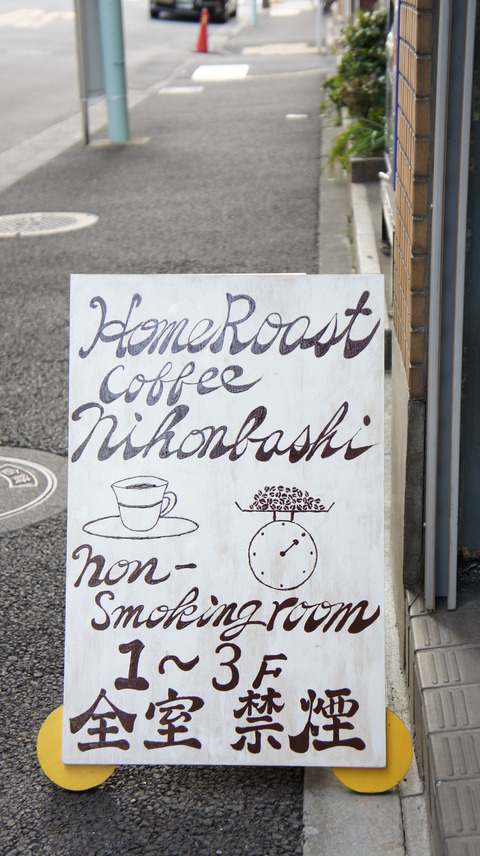 HomeRoast
Coffee
Nihonbashi
non-
Smoking room
1～3F
全室 禁煙